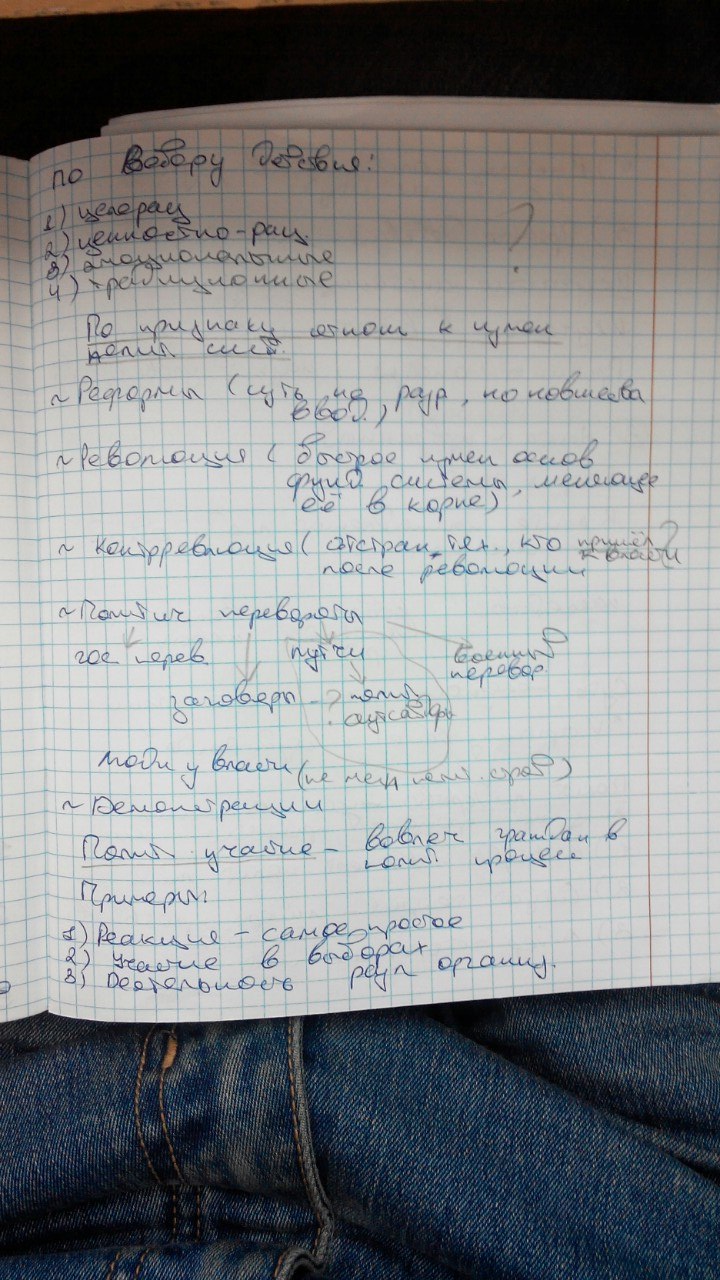 по Вебберу действия:
?
1) целерац
2) ценностно-рац
3) эмоциональные
4) традиционные
По признаку отнош к измен
полит сист.
~ Реформы (суть не разр, но новшества
ввод.)
~ Революция ( быстрое измен основ
фунд системы, меняющее
её в корне)
~ Контрреволюция ( отстран. тех, кто пришёл ?
к власти
после революции
~ Политич перевороты
гос перев. путчи военный
перевор.
заговоры - ? полит.
люди у власти (не меняя полит. строй)
~ Демонстрации
Полит участие - вовлеч граждан в
полит процесс
Примеры:
1) Реакция - самое простое
2) Участие в выборах
3) Деятельность разл организ.